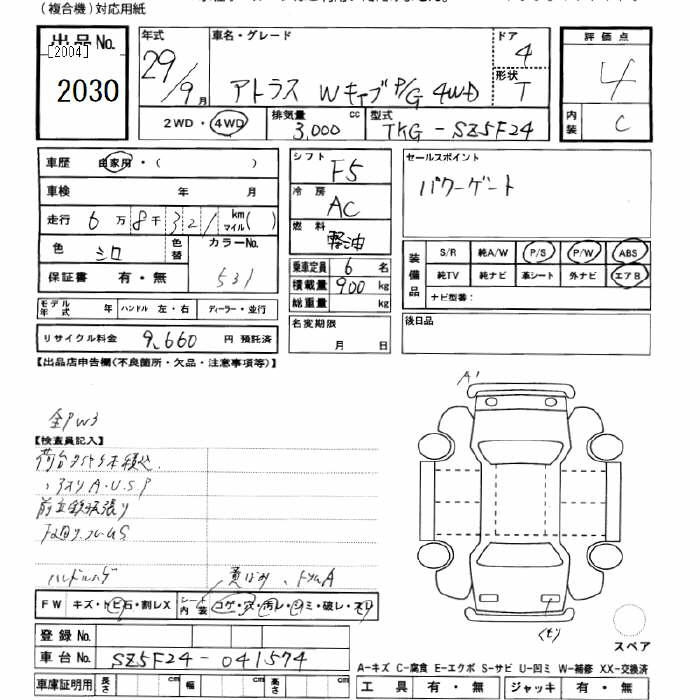 (複合機)対応用紙
出品No.
[2004]
2030
年式
29/9月
車名・グレード
アトラス Wキャブ P/G 4WD
ドア
4
形状
T
評価点
4
内装
C
2WD・4WD
排気量
3,000 cc
型式
TKG-SZ5F24
車歴 自家用・( )
車検 年 月
走行 6万8千321 km マイル( )
色 シロ 色替 カラーNo. 531
保証書 有・無
シフト F5
冷房 AC
燃料 軽油
乗車定員 6 名
積載量 900 kg
総重量 kg
セールスポイント
パワーゲート
装備品
S/R 純A/W P/S P/W ABS
純TV 純ナビ 革シート 外ナビ エアB
ナビ型番:
モデル年式 年 ハンドル 左・右 ディーラー・並行
リサイクル料金 9,660 円 預託済
名変期限
月 日
後日品
【出品店申告欄(不良箇所・欠品・注意事項等)】
A1
【検査員記入】
アオリA・U・S・P
ハンドル
黄ばみ、
FW キズ・トビ石・割レX シート内装 コゲ・穴・汚レ・シミ・破レ・スレ
登録No.
車台No. SZ5F24-041574
車庫証明用 長さ cm 幅 cm 高さ cm
スペア
A-キズ C-腐食 E-エクボ S-サビ U-凹ミ W-補修 XX-交換済
工具 有・無 ジャッキ 有・無